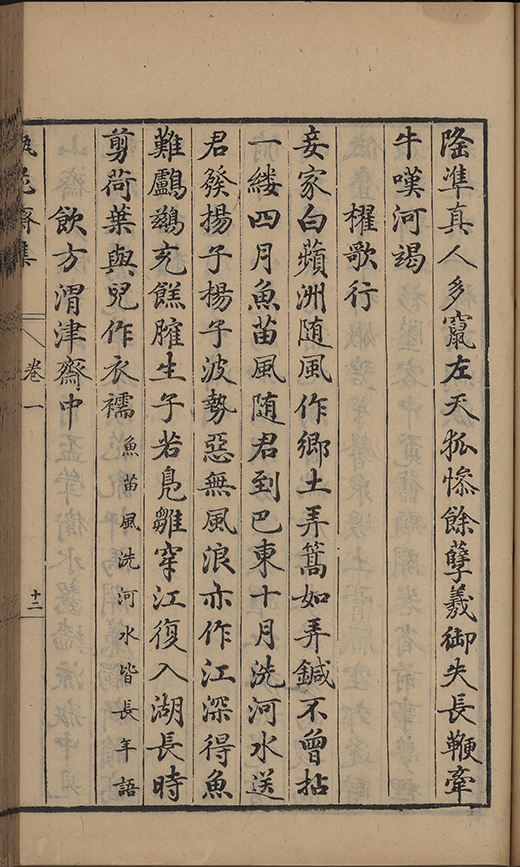 隆準真人多竄左天狐慘餘孽羲御失長鞭牽
牛嘆河竭
櫂歌行
妾家白蘋洲隨風作鄉土弄篙如弄鍼不曾拈
一縷四月魚苗風隨君到巴東十月洗河水送
君發揚子揚子波勢惡無風浪亦作江深得魚
難鸕鷀充餻臛生子若鳧雛穿江復入湖長時
剪荷葉與兒作衣襦魚苗風洗河水皆長年語
飲方渭津齋中
卷一
十二